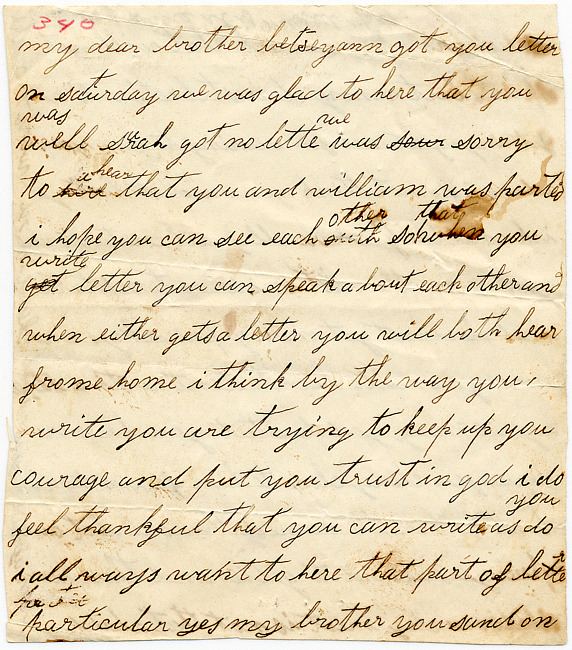 340
my dear brother betseyann got you letter
on saturday we was glad to here that you
was
well sarah got no lette we was sour sorry
to hear that you and william was parted
other that
i hope you can see each outh so when you
write
get letter you can speak a bout each other and
when either gets a letter you will both hear
frome home i think by the way you
write you are trying to keep up you
courage and put you trust in god i do
you
feel thankful that you can write as do
i all ways want to here that part of letter
particular yes my brother you sand on